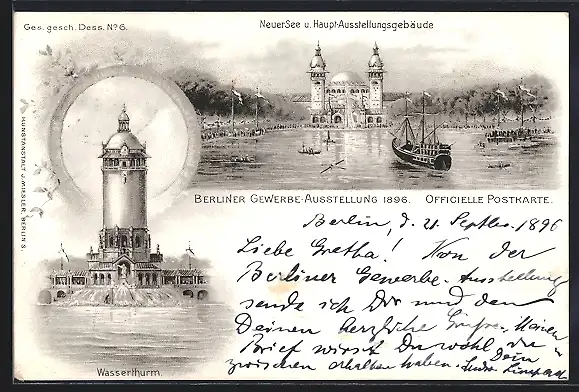 Ges. gesch. Dess. No 6.
Neuer See u. Haupt-Ausstellungsgebäude
KUNSTANSTALT J. MIESLER, BERLIN S.
Berliner Gewerbe-Ausstellung 1896. Officielle Postkarte.
Wasserthurm.
Berlin, d. 21 Septbr. 1896
Liebe Gretha! Von der
Berliner Gewerbe-Ausstellung
sende ich Dir und den
Deinen herzliche Grüße. Meinen
Brief wirst Du wohl da
zwischen erhalten haben. Dein